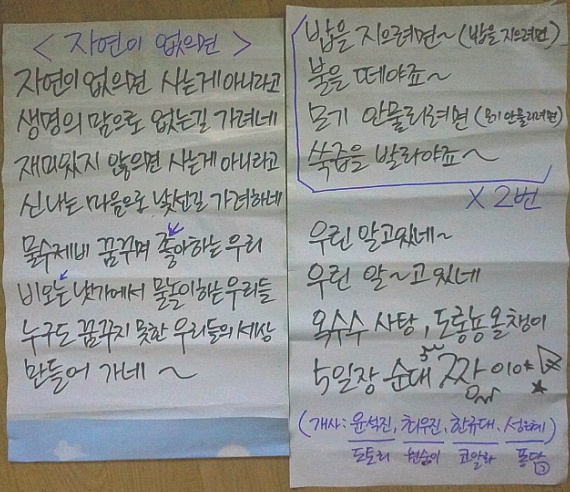 < 자연이 없으면 >
자연이 없으면 사는게 아니라고
생명의 맘으로 없는길 가려네
재미있지 않으면 사는게 아니라고
신나는 마음으로 낯선길 가려하네
물수제비 꿈꾸며 좋아하는 우리
비오는 냇가에서 물놀이하는 우리들
누구도 꿈꾸지 못한 우리들의 세상
만들어 가네 ~
밥을 지으려면~ (밥을 지으려면)
불을 떼야죠~
모기 안물리려면 (모기 안물리려면)
쑥즙을 발라야죠~
X 2번
우린 알고있네~
우린 알~고있네
옥수수 사탕, 도롱뇽올챙이
5일장 순대 짱이야
(개사: 윤석진, 최우진, 한규대, 성혜)
도토리 원숭이 코알라 퐁당